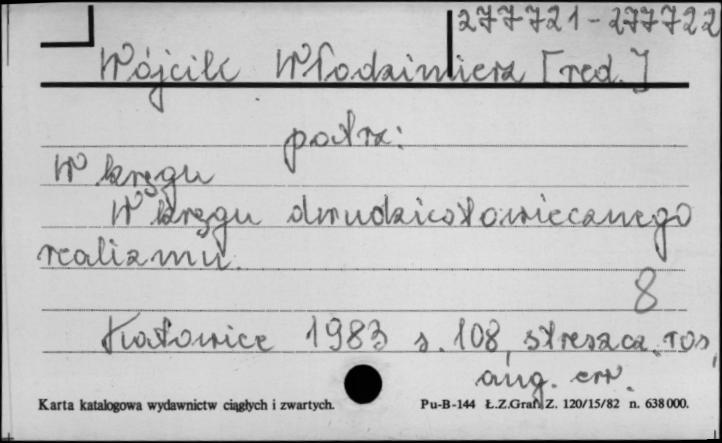 277721-277722
Wójcik Włodzimierz [red.]
patrz:
W kręgu
W kręgu dwudziestowiecznego
realizmu.
8
Katowice 1983 s. 108, streszcz. ros,
ang. err.
Karta katalogowa wydawnictw ciągłych i zwartych. Pu-B-144 Ł.Z.Graf. Z. 120/15/82 n. 638000.